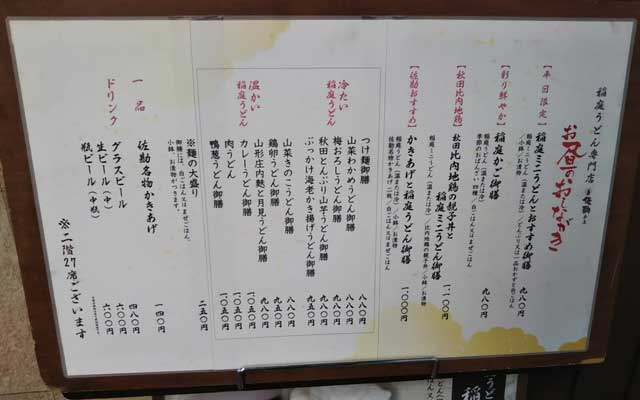 稲庭うどん専門店
お昼のおしながき
【平日限定】
稲庭ミニうどんとおすすめ御膳 九八〇円
【彩り鮮やか】
稲庭かご御膳 九八〇円
【秋田比内地鶏】
秋田比内地鶏の親子丼と
稲庭ミニうどん御膳 一、一〇〇円
【佐勘おすすめ】
かきあげと稲庭うどん御膳 一、〇〇〇円
冷たい
稲庭うどん
つけ麺御膳 八八〇円
山菜わかめうどん御膳 八八〇円
梅おろしうどん御膳 九八〇円
秋田とんぶり山芋うどん御膳 九八〇円
ぶっかけ海老かき揚げうどん御膳 九五〇円
温かい
稲庭うどん
山菜きのこうどん御膳 八八〇円
鶏卵うどん御膳 九五〇円
山形庄内麩と月見うどん御膳 九八〇円
カレーうどん御膳 一〇五〇円
肉うどん御膳 一〇五〇円
鴨葱うどん御膳 一〇五〇円
※麺の大盛り 二五〇円
御膳には、白ごはん又はまぜごはん、
小鉢、お漬物がつきます。
一品
佐勘名物かきあげ 一四〇円
ドリンク
グラスビール 四八〇円
生ビール(中) 六〇〇円
瓶ビール(中瓶) 六〇〇円
※二階27席ございます